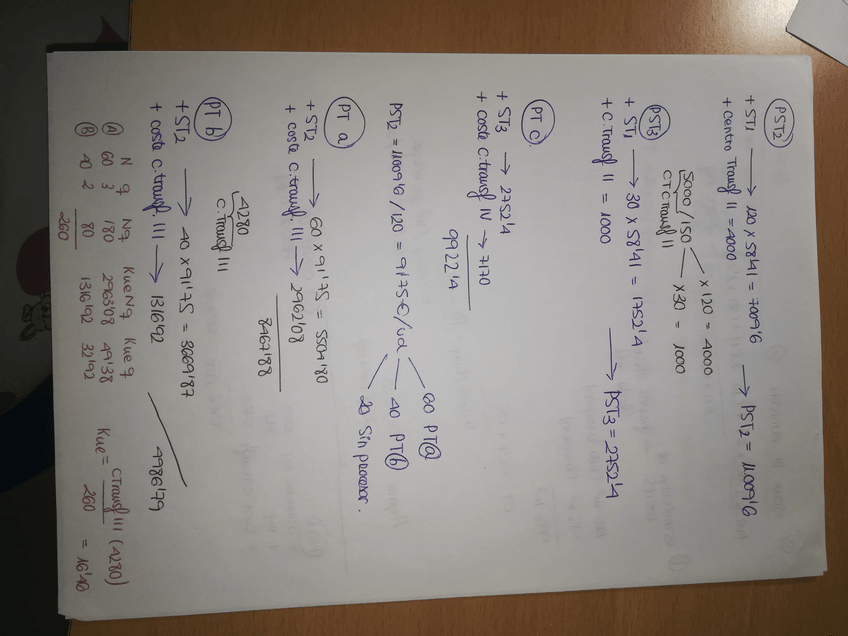 PST2
+ ST1 → 120 x 58'41 = 7009'6 → PST2 = 11.009'6
+ Centro Transf II = 4000
5000/150 x 120 = 4000
CTC Transf II x 30 = 1000
PST3
+ ST1 → 30 x 58'41 = 1752'4 → PST3 = 2752'4
+ C. Transf II = 1000
PT c
+ ST3 → 2752'4
+ coste c. transf IV → 7170
9922'4
PST2 = 11.009'6 / 120 = 91'75 €/ud
60 PT a
40 PT b
20 Sin procesar.
PT a
+ ST2 → 60 x 91'75 = 5504'80
+ coste c. transf. III → 2963'08
8467'88
4280
C. Transf III
PT b
+ ST2 → 40 x 91'75 = 3669'87
+ coste c. transf. III → 1316'92
4986'79
N q Nq KueNq Kueq
A 60 3 180 2963'08 49'38
B 40 2 80 1316'92 32'92
260
Kue = CTransf III (4280) / 260 = 16'46